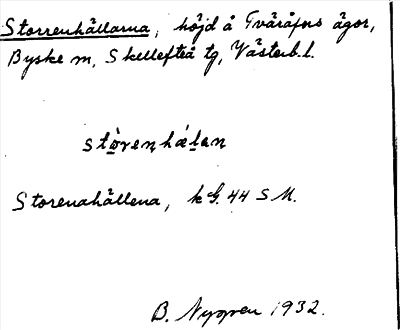 Storrenhällarna, höjd å Tvåråfors ägor,
Byske sn, Skellefteå tg, Västerb.l.
stòrenhǽlan
Storenahällena, k G. 44 S M.
B. Nygren 1932.